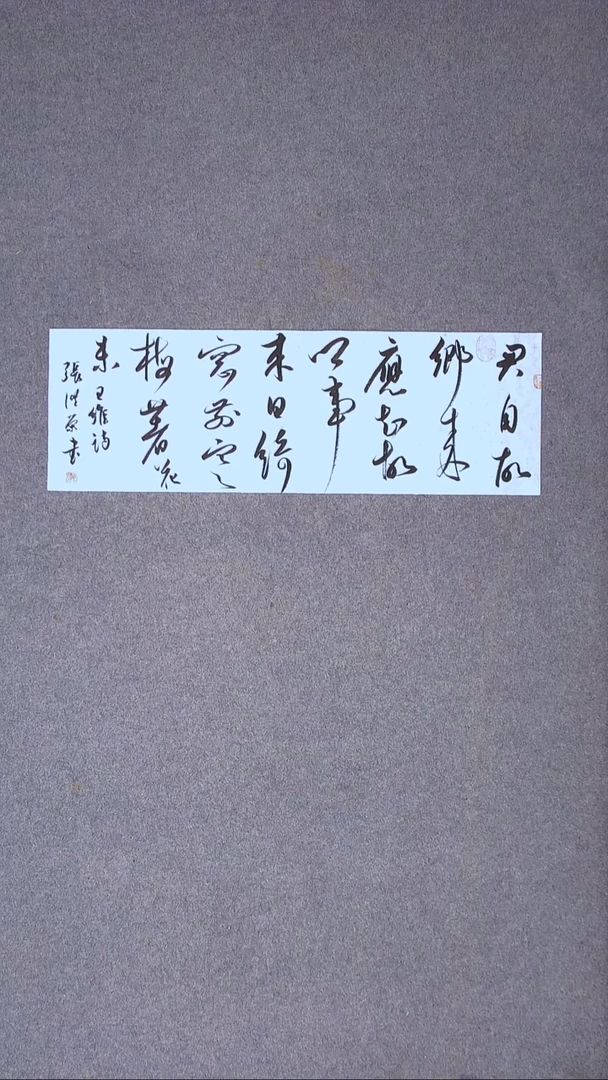 君自故
鄉來
應知故
鄉事
來日綺
窗前寒
梅著花
未 王維詩
張洪 書